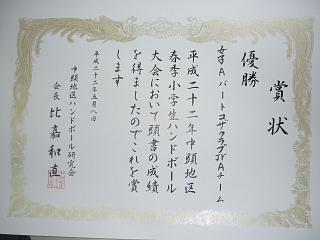 賞状
優勝
女子Aパート コザクラブJrAチーム
平成二十二年中頭地区
春季小学生ハンドボール
大会において頭書の成績
を得ましたのでこれを賞
します
平成二十二年五月八日
中頭地区ハンドボール研究会
会長 比嘉和直